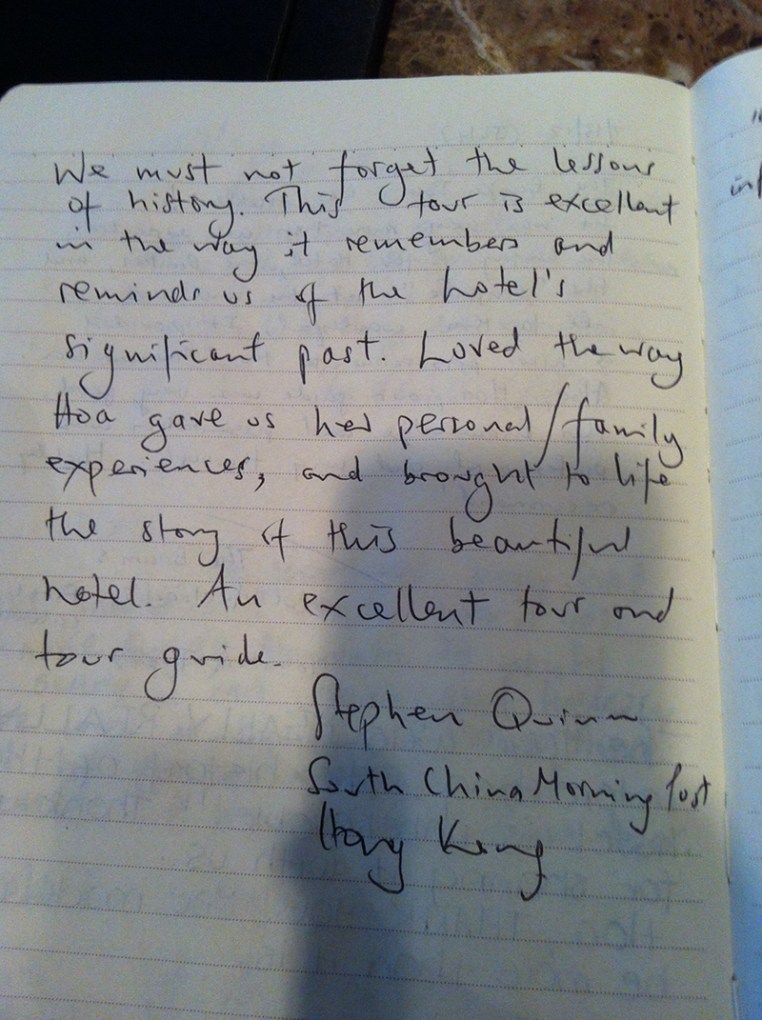 We must not forget the lessons
of history. This tour is excellent
in the way it remembers and
reminds us of the hotel's
significant past. Loved the way
Hoa gave us her personal/family
experiences, and brought to life
the story of this beautiful
hotel. An excellent tour and
tour guide.
Stephen Quinn
South China Morning Post
Hong Kong